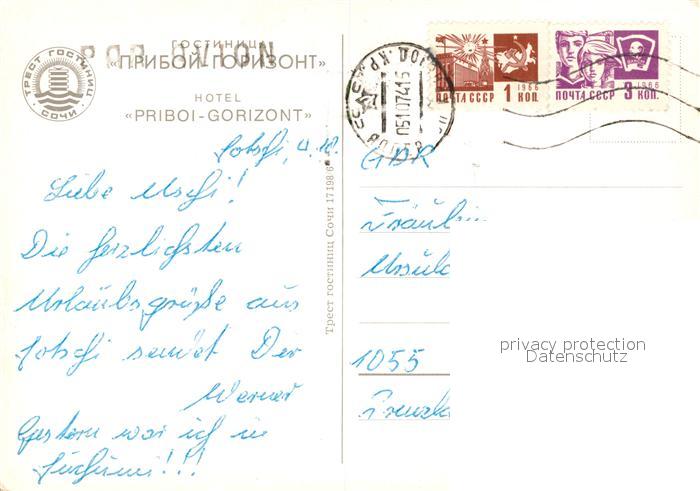 ГОСТИНИЦА
«ПРИБОЙ-ГОРИЗОНТ»
HOTEL
«PRIBOI-GORIZONT»
ТРЕСТ ГОСТИНИЦ
СОЧИ
1966
ПОЧТА СССР 1 КОП.
1966
ПОЧТА СССР 3 КОП.
Sotschi, 4.10.
Liebe Uschi!
Die herzlichsten
Urlaubsgrüße aus
Sotschi sendet Dir
Werner
Gestern war ich in
Suchumi!!!
Трест гостиниц Сочи 17198 6
GDR
Fräulein
Ursula
1055
Prenzla
privacy protection
Datenschutz